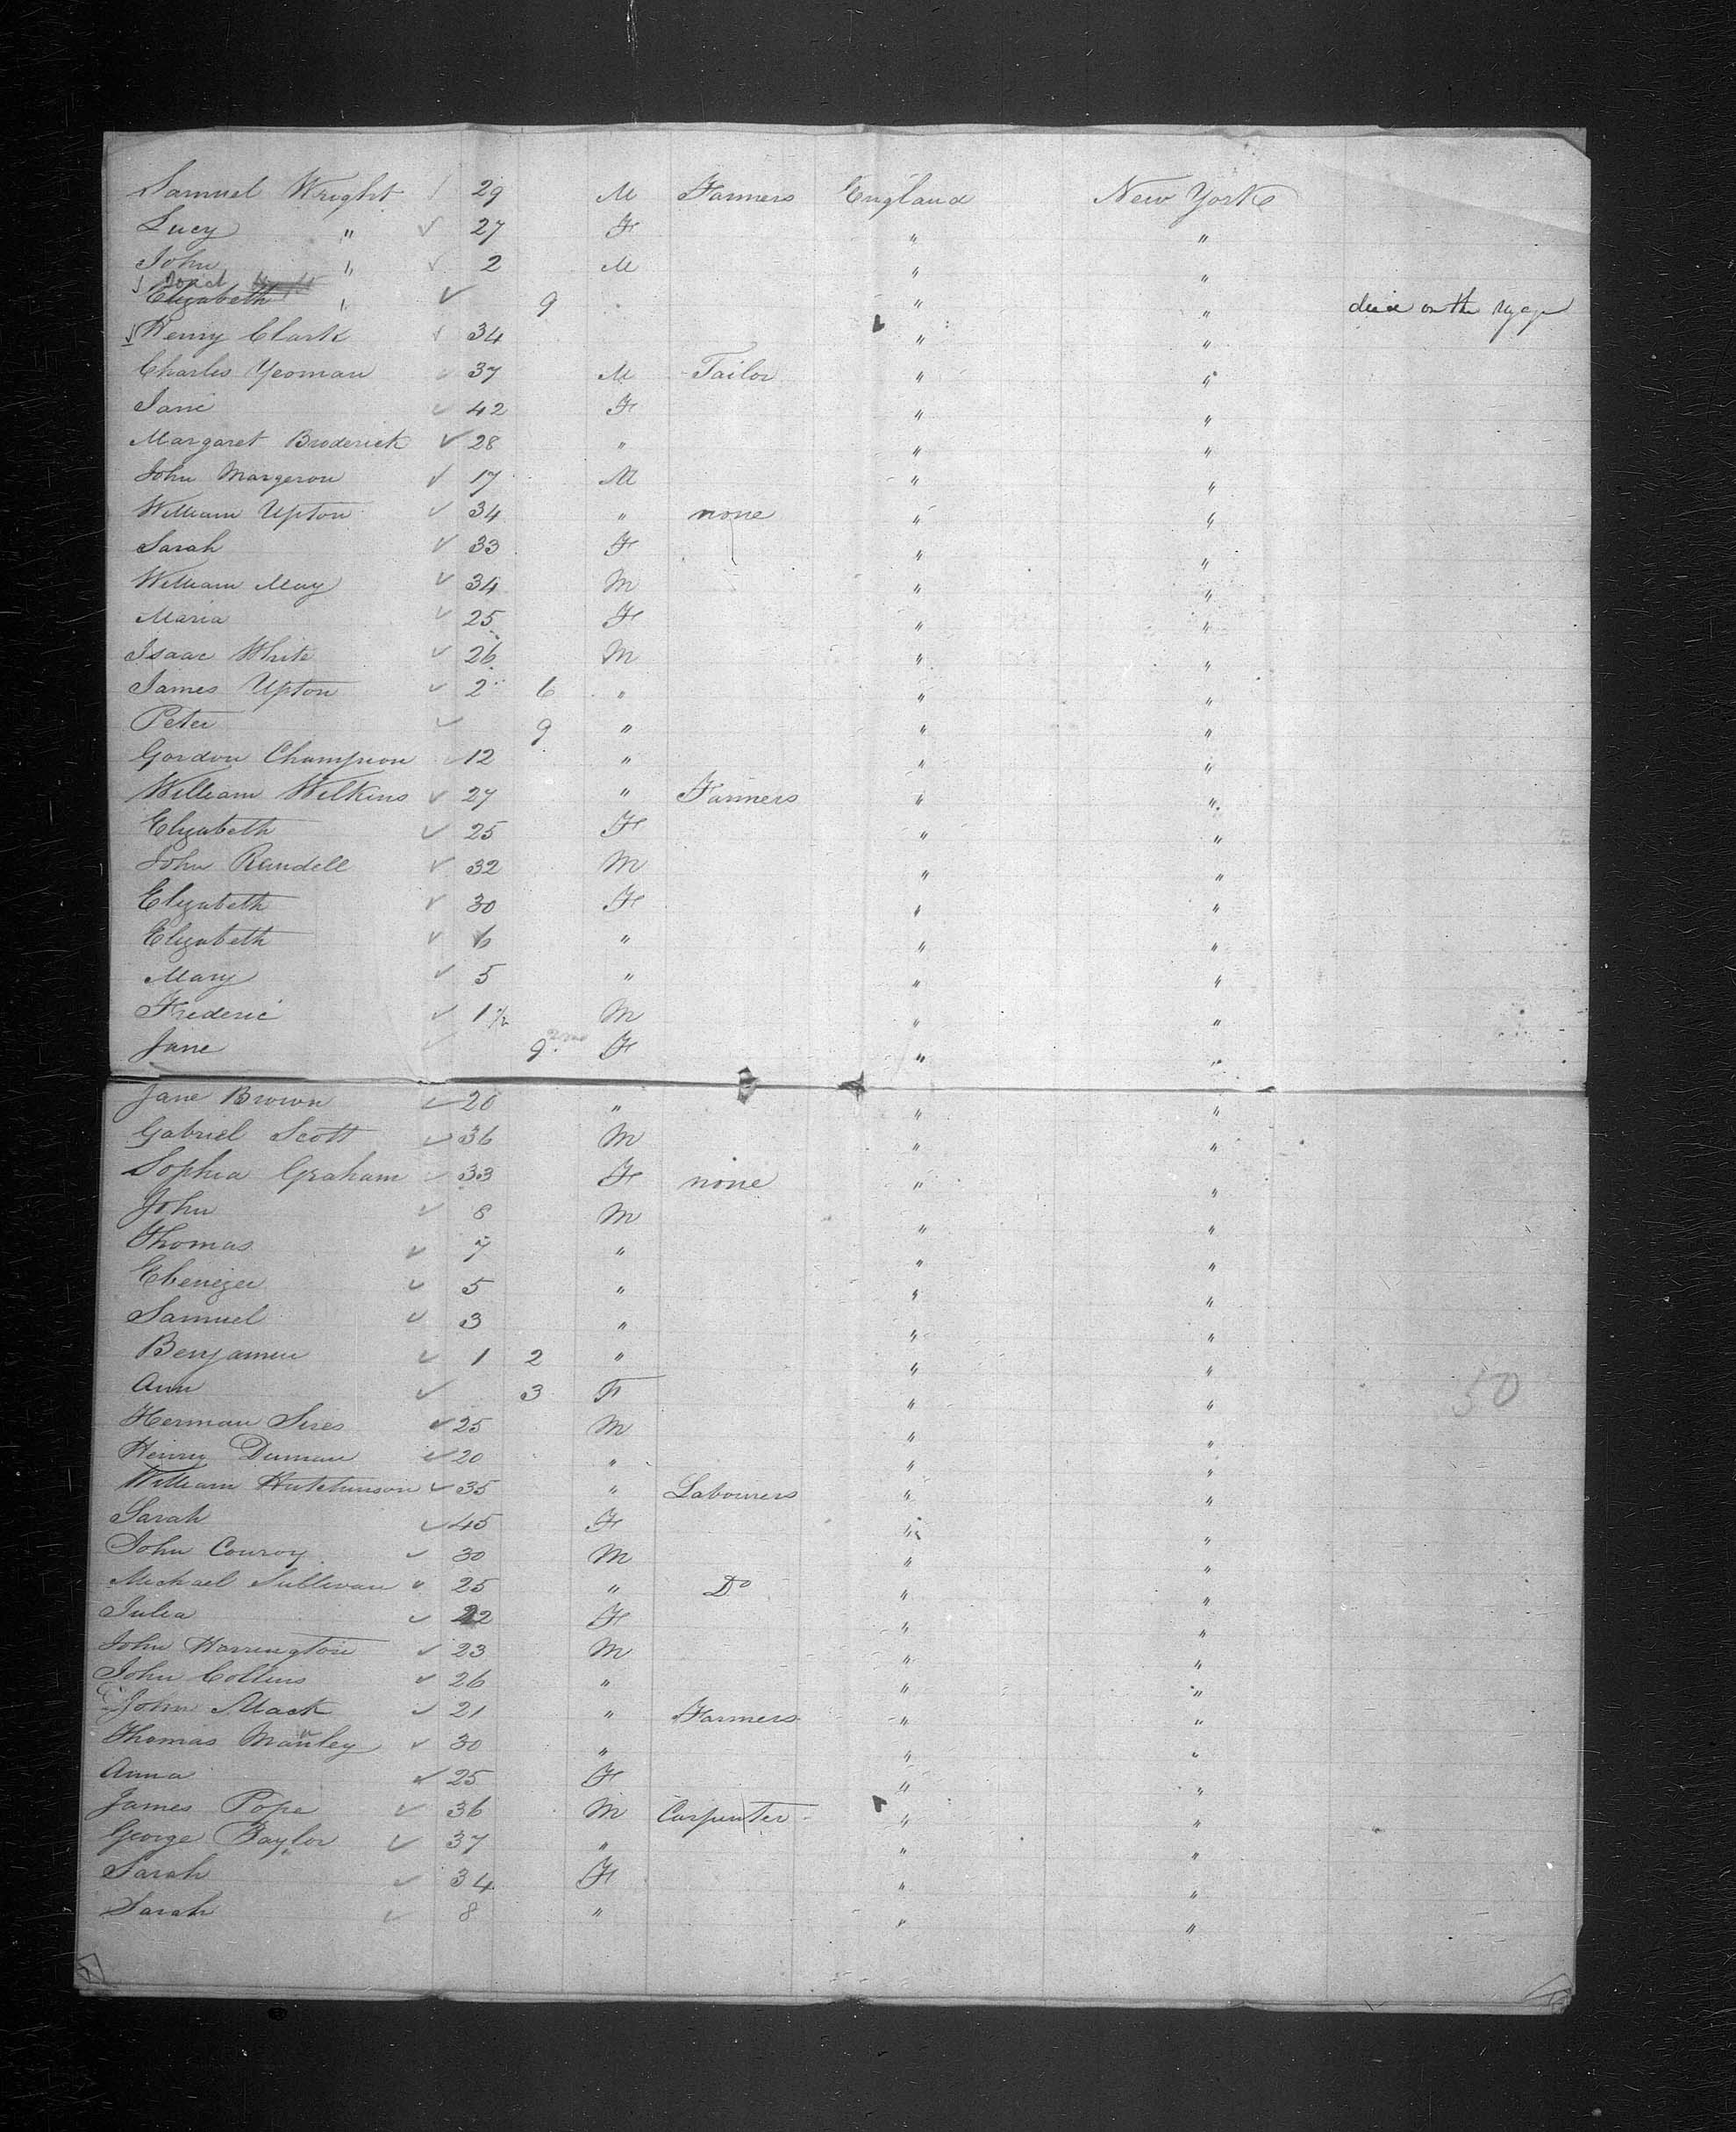 Samuel Wright 29 M Farmers England New York
Lucy " 27 F " "
John " 2 M " "
Elizabeth " 9 " " on the
Henry Clark 34 " "
Charles Yeoman 37 M Tailor " "
Jane 42 F " "
Margaret Broderick 28 " " "
John Margerou 17 M " "
William Upton 34 " none " "
Sarah 33 F " "
William May 34 M " "
Maria 25 F " "
Isaac White 26 M " "
James Upton 2 6 " " "
Peter 9 " " "
Gordon Champion 12 " " "
William Wilkins 27 " Farmers " "
Elizabeth 25 F " "
John Randell 32 M " "
Elizabeth 30 F " "
Elizabeth 6 " " "
Mary 5 " " "
Frederic 1 1/2 M " "
Jane 9 F " "
Jane Brown 20 " " "
Gabriel Scott 36 M " "
Sophia Graham 33 F none " "
John 8 M " "
Thomas 7 " " "
Ebenezer 5 " " "
Samuel 3 " " "
Benjamin 1 2 " " "
Ann 3 F " "
50
Herman Sires 25 M " "
Henry Duman 20 " " "
William Hutchinson 35 " Labourers " "
Sarah 45 F " "
John Conroy 30 M " "
Michael Sullivan 25 " Do " "
Julia 22 F " "
John Harrington 23 M " "
John Collins 26 " " "
John Mack 21 " Farmers " "
Thomas Manley 30 " " "
Anna 25 F " "
James Pope 36 M Carpenter " "
George Baylor 37 " " "
Sarah 34 F " "
Sarah 8 " " "